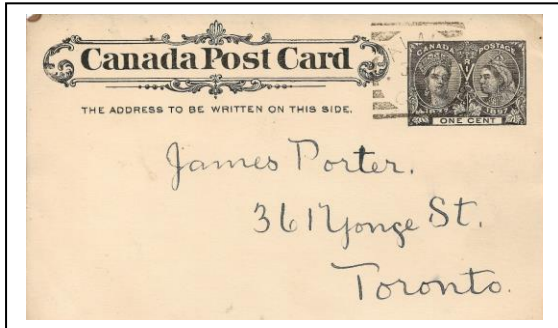 Canada Post Card
THE ADDRESS TO BE WRITTEN ON THIS SIDE.
CANADA POSTAGE
1837 1897
ONE CENT
James Porter.
361 Yonge St.
Toronto.